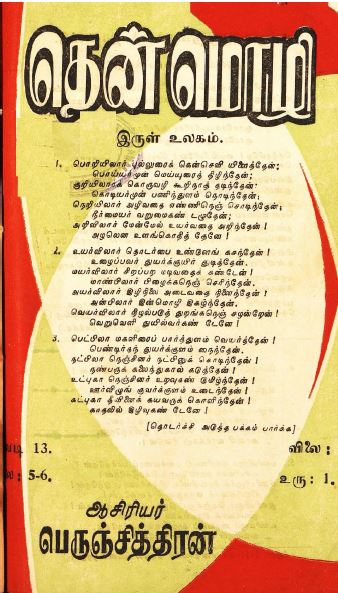 தென்மொழி
இருள் உலகம்.
1. பொறியிலார் புல்லுரைக் கென்செவி யிணைத்தேன்;
பொய்யர்முன் மெய்யுரைத் திழிந்தேன்;
குறியிலாரக் கொருவழி கூறிநாத் தடிந்தேன்;
கொடியர்முன் பணிந்துளம் நொடிந்தேன்;
நெறியிலார் அழிவதை எண்ணிநெஞ் சொடிந்தேன்;
நீர்மையர் வறுமைகண் டழுதேன்;
அறிவிலார் மேன்மேல் உயர்வதை அறிந்தேன் !
அழலென உளங்கொதித் தேனே !
2. உயர்விலார் தொடர்பை உண்ணேங் கசந்தேன் !
உழைப்பவர் துயர்க்குயிர் துடித்தேன்.
மயர்விலார் சிறப்பற மடிவதைக் கண்டேன் !
மாண்பிலார் பிழைக்கநெஞ் செரிந்தேன்.
அயர்விலார் இழிநிலை அடைவதை நினைந்தேன் !
அன்பிலார் இன்மொழி இகழ்ந்தேன்.
வெயர்விலார் நிழல்படுத் துறங்கநெஞ் சழன்றேன் !
வெறுவெளி துயில்வர்கண் டேனே !
3. பெட்பிலா மகளிரைப் பார்த்துளம் வெயர்த்தேன் !
பெண்டிர்தந் துயர்க்குளம் நைந்தேன்.
நட்பிலா நெஞ்சினர் நட்பினுக் கொடிந்தேன் !
நண்பருக் கலைந்துகால் கடுத்தேன் !
உட்புகா நெஞ்சினர் உறவுகண் டுமிழ்ந்தேன் !
ஊர்விழுங் குவர்க்குளம் உடைந்தேன் !
கட்புகா தீவினைக் கயவருக் கொளிந்தேன் !
காதலில் இழிவுகண் டேனே !
[தொடர்ச்சி அடுத்த பக்கம் பார்க்க]
வடி 13. விலை :
ை: 5-6. உரு : 1.
ஆசிரியர்
பெருஞ்சித்திரன்